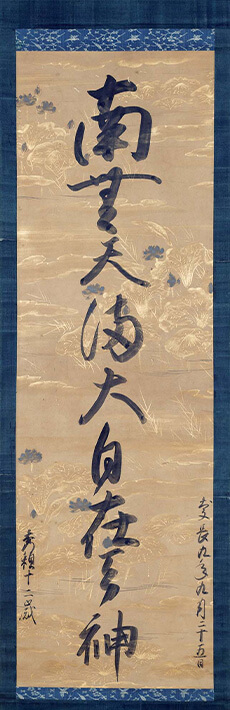 慶長九年九月二十五日
南無天満大自在天神
秀頼十二歳